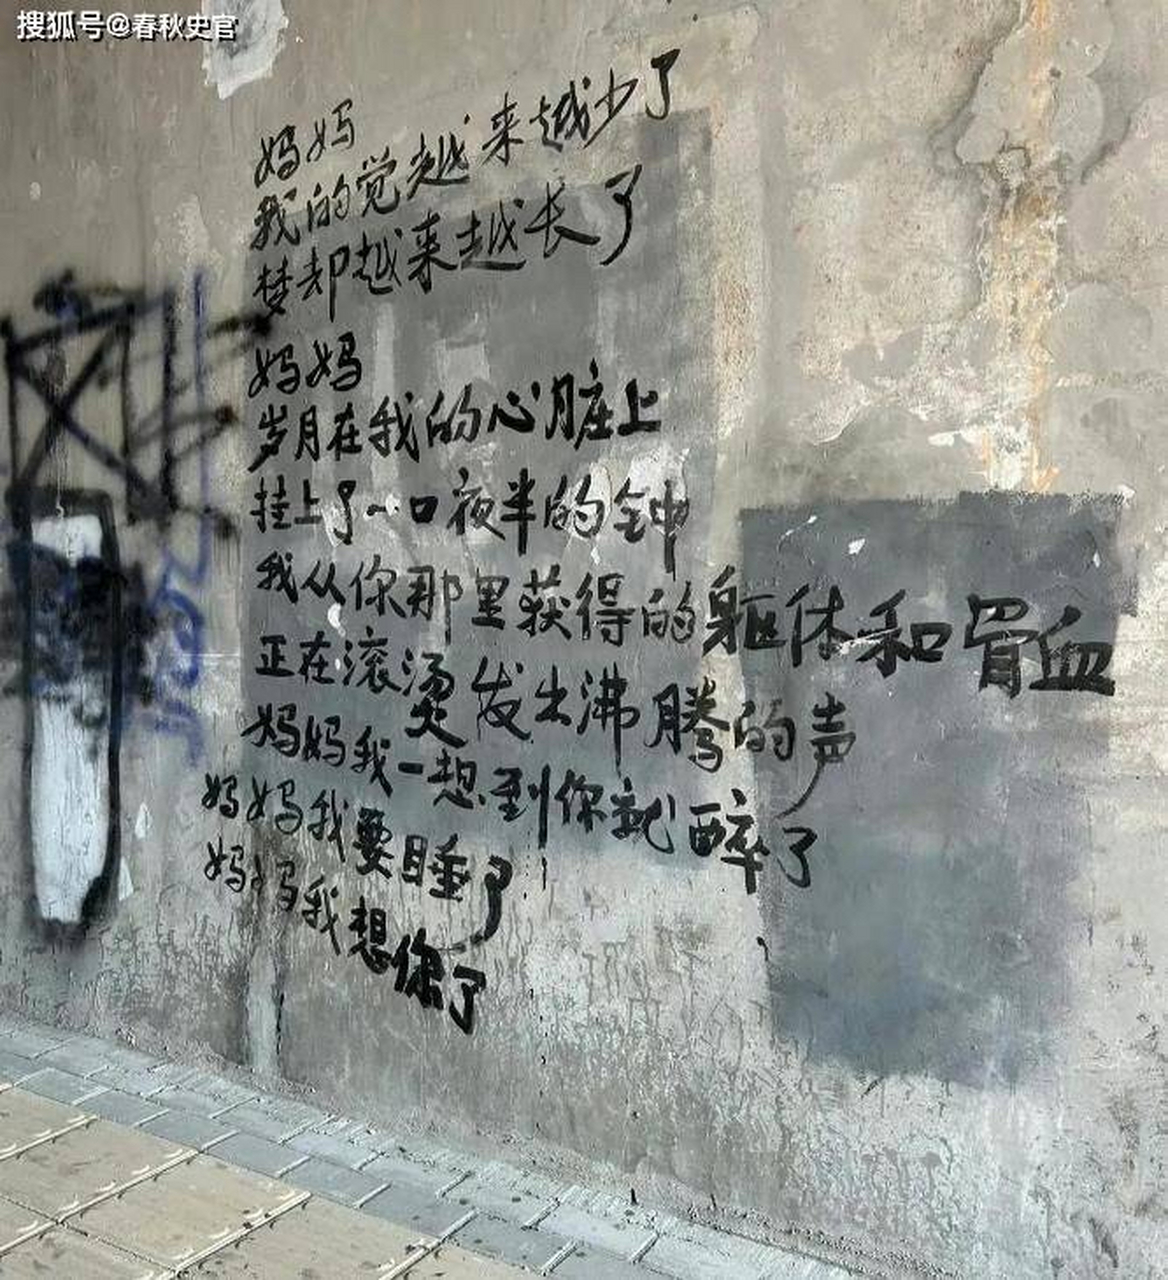 搜狐号@春秋史官
妈妈
我的觉越来越少了
梦却越来越长了
妈妈
岁月在我的心脏上
挂上了一口夜半的钟
我从你那里获得的躯体和骨血
正在滚烫发出沸腾的声
妈妈我一想到你就醉了
妈妈我要睡了
妈妈我想你了